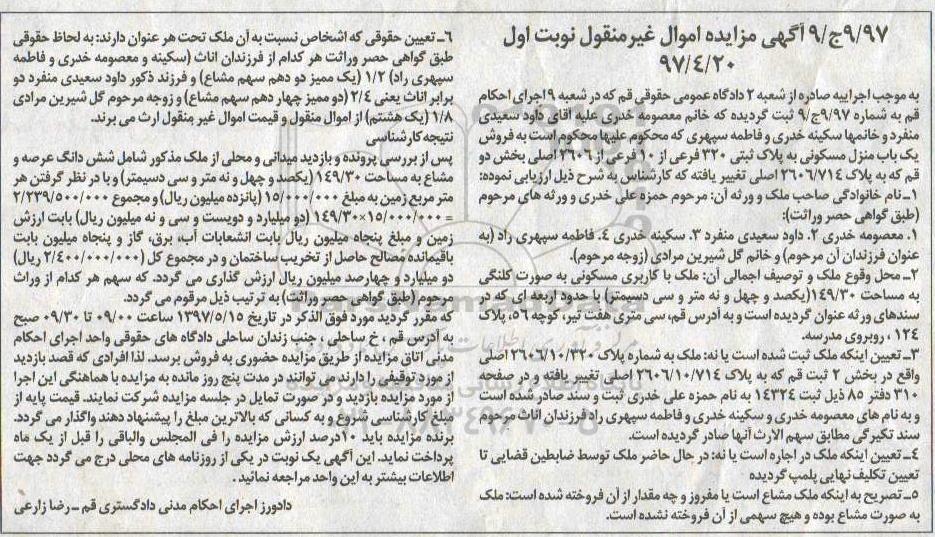 ۹/۹۷ج/۹ آگهی مزایده اموال غیرمنقول نوبت اول
۹۷/۴/۲۰
به موجب اجراییه صادره از شعبه ۲ دادگاه عمومی حقوقی قم که در شعبه ۹ اجرای احکام
قم به شماره ۹/۹۷ج/۹ ثبت گردیده که خانم معصومه خدری علیه آقای داود سعیدی
منفرد و خانمها سکینه خدری و فاطمه سپهری که محکوم علیها محکوم است به فروش
یک باب منزل مسکونی به پلاک ثبتی ۳۲۰ فرعی از ۱۰ فرعی از ۲۶۰۶ اصلی بخش دو
قم که به پلاک ۲۶۰۶/۷۱۴ اصلی تغییر یافته که کارشناس به شرح ذیل ارزیابی نموده:
۱ـ نام خانوادگی صاحب ملک و ورثه آن: مرحوم حمزه علی خدری و ورثه های مرحوم
(طبق گواهی حصر وراثت):
۱. معصومه خدری ۲. داود سعیدی منفرد ۳. سکینه خدری ۴. فاطمه سپهری راد (به
عنوان فرزندان آن مرحوم) و خانم گل شیرین مرادی (زوجه مرحوم).
۲ـ محل وقوع ملک و توصیف اجمالی آن: ملک با کاربری مسکونی به صورت کلنگی
به مساحت ۱۴۹/۳۰(یکصد و چهل و نه متر و سی دسیمتر) با حدود اربعه ای که در
سندهای ورثه عنوان گردیده است و به آدرس قم، سی متری هفت تیر، کوچه ۵۶، پلاک
۱۲۴ ، روبروی مدرسه.
۳ـ تعیین اینکه ملک ثبت شده است یا نه: ملک به شماره پلاک ۲۶۰۶/۱۰/۳۲۰ اصلی
واقع در بخش ۲ ثبت قم که به پلاک ۲۶۰۶/۱۰/۷۱۴ اصلی تغییر یافته و در صفحه
۳۱۰ دفتر ۸۵ ذیل ثبت ۱۴۳۲۴ به نام حمزه علی خدری ثبت و سند صادر شده است
و به نام های معصومه خدری و سکینه خدری و فاطمه سپهری راد فرزندان اناث مرحوم
سند تکبرگی مطابق سهم الارث آنها صادر گردیده است.
۴ـ تعیین اینکه ملک در اجاره است یا نه: در حال حاضر ملک توسط ضابطین قضایی تا
تعیین تکلیف نهایی پلمپ گردیده
۵ـ تصریح به اینکه ملک مشاع است یا مفروز و چه مقدار از آن فروخته شده است: ملک
به صورت مشاع بوده و هیچ سهمی از آن فروخته نشده است.
۶ـ تعیین حقوقی که اشخاص نسبت به آن ملک تحت هر عنوان دارند: به لحاظ حقوقی
طبق گواهی حصر وراثت هر کدام از فرزندان اناث (سکینه و معصومه خدری و فاطمه
سپهری راد) ۱/۲ (یک ممیز دو دهم سهم مشاع) و فرزند ذکور داود سعیدی منفرد دو
برابر اناث یعنی ۲/۴ (دو ممیز چهار دهم سهم مشاع) و زوجه مرحوم گل شیرین مرادی
۱/۸ (یک هشتم) از اموال منقول و قیمت اموال غیر منقول ارث می برند.
نتیجه کارشناسی
پس از بررسی پرونده و بازدید میدانی و محلی از ملک مذکور شامل شش دانگ عرصه و
مشاع به مساحت ۱۴۹/۳۰ (یکصد و چهل و نه متر و سی دسیمتر) و با در نظر گرفتن هر
متر مربع زمین به مبلغ ۱۵/۰۰۰/۰۰۰ (پانزده میلیون ریال) و مجموع ۲/۲۳۹/۵۰۰/۰۰۰
= ۱۵/۰۰۰/۰۰۰×۱۴۹/۳۰ (دو میلیارد و دویست و سی و نه میلیون ریال) بابت ارزش
زمین و مبلغ پنجاه میلیون ریال بابت انشعابات آب، برق، گاز و پنجاه میلیون بابت
باقیمانده مصالح حاصل از تخریب ساختمان و در مجموع کل (۲/۴۰۰/۰۰۰/۰۰۰ ریال)
دو میلیارد و چهارصد میلیون ریال ارزش گذاری می گردد. که سهم هر کدام از وراث
مرحوم (طبق گواهی حصر وراثت) به ترتیب ذیل مرقوم می گردد.
که مقرر گردید مورد فوق الذکر در تاریخ ۱۳۹۷/۵/۱۵ ساعت ۰۹/۰۰ تا ۰۹/۳۰ صبح
به آدرس قم ، خ ساحلی ، جنب زندان ساحلی دادگاه های حقوقی واحد اجرای احکام
مدنی اتاق مزایده از طریق مزایده حضوری به فروش برسد. لذا افرادی که قصد بازدید
از مورد توقیفی را دارند می توانند در مدت پنج روز مانده به مزایده با هماهنگی این اجرا
از مورد مزایده بازدید و در صورت تمایل در جلسه مزایده شرکت نمایند. قیمت پایه از
مبلغ کارشناسی شروع و به کسانی که بالاترین مبلغ را پیشنهاد دهند واگذار می گردد.
برنده مزایده باید ۱۰درصد ارزش مزایده را فی المجلس والباقی را قبل از یک ماه
پرداخت نماید. این آگهی یک نوبت در یکی از روزنامه های محلی درج می گردد جهت
اطلاعات بیشتر به این واحد مراجعه نمائید .
دادورز اجرای احکام مدنی دادگستری قم ـ رضا زارعی